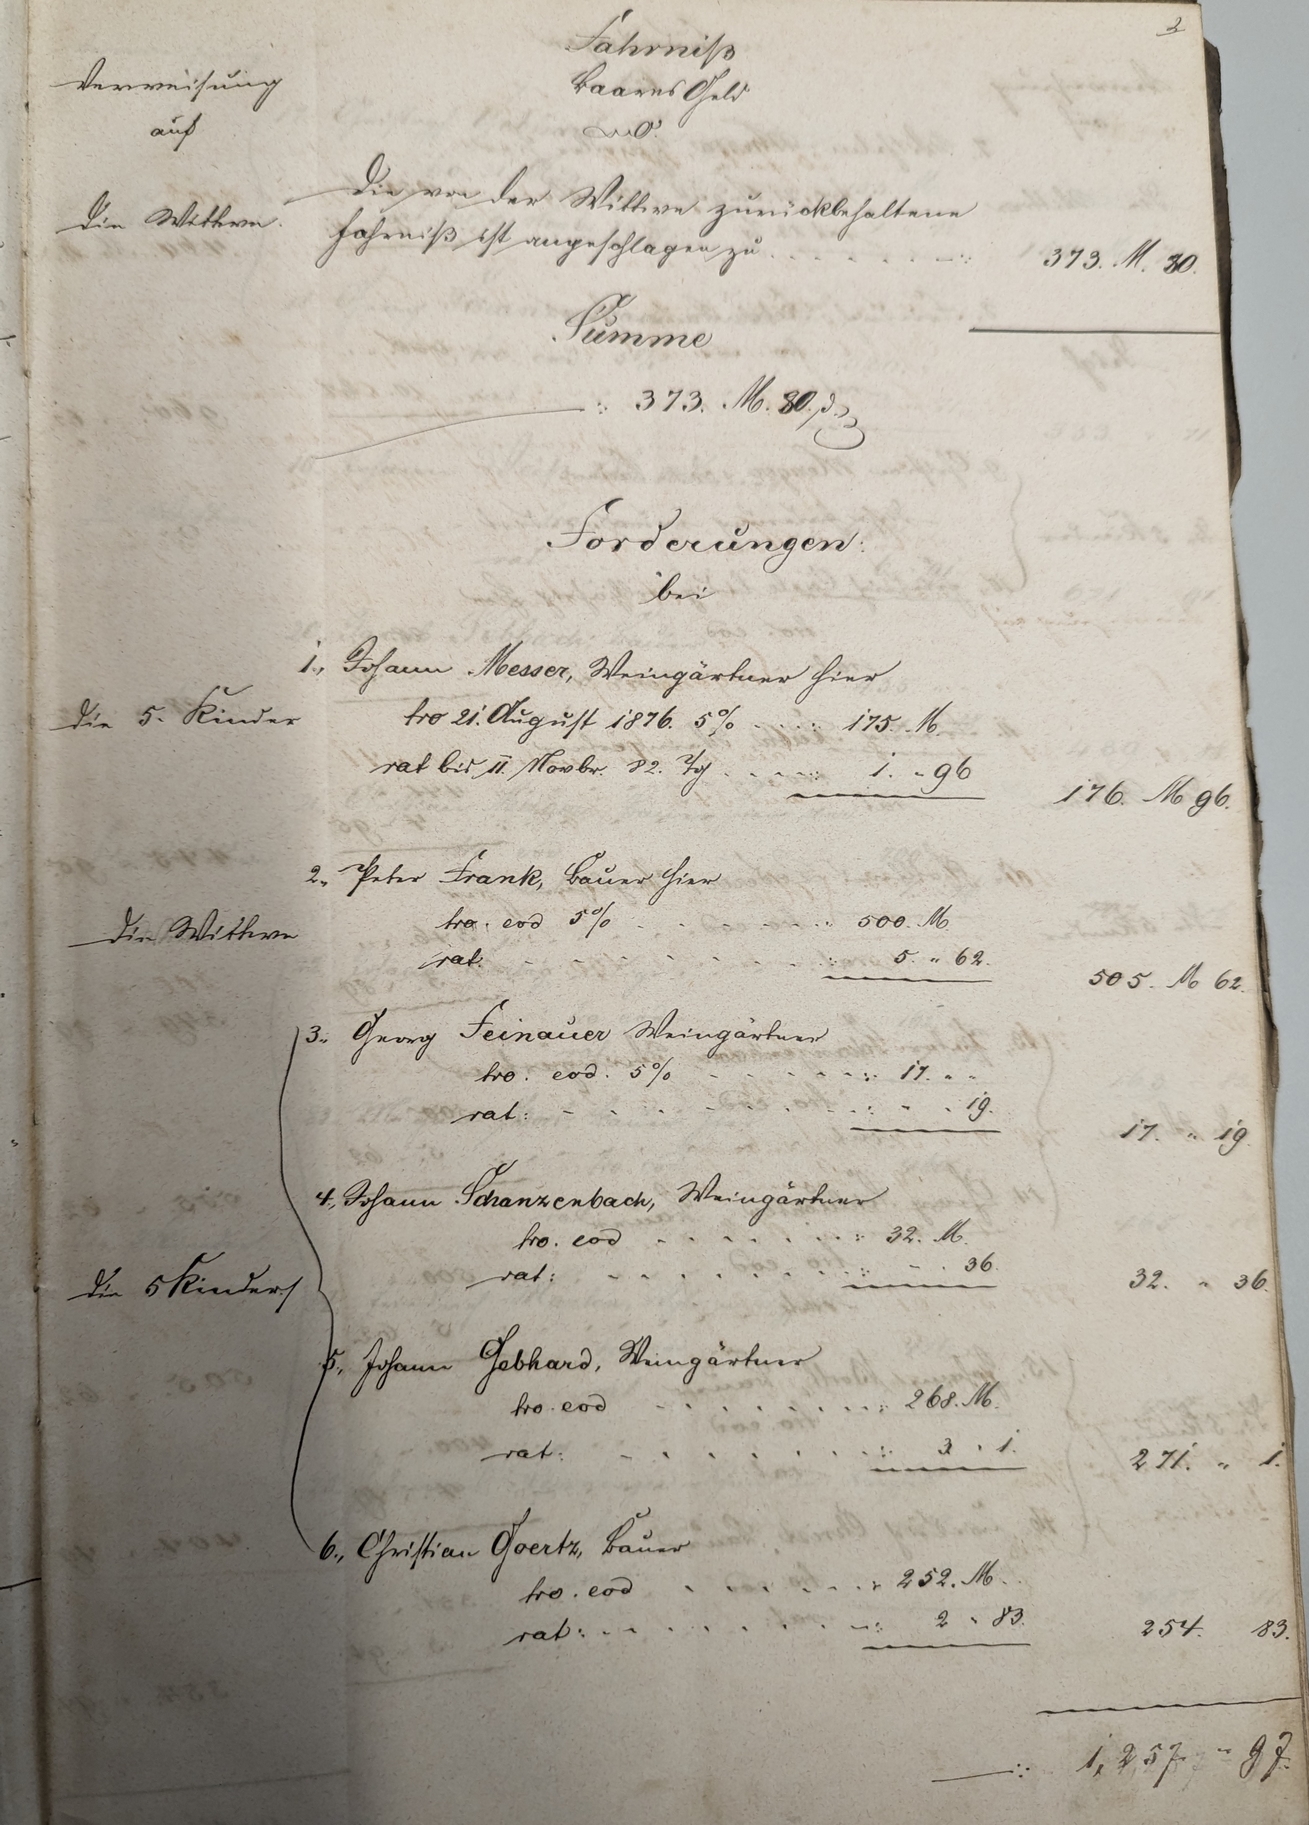 3
Fahrniß
Verweisung
auf
Baares Geld
0.
Die Wittwe.
Die von der Wittwe zurückbehaltene
Fahrniß ist angeschlagen zu . . . . . . . 373. M. 80.
Summe
373. M. 80. d.
Forderungen:
bei
1., Johann Messer, Weingärtner hier
die 5. Kinder
tro 21. August 1876. 5% . . . . 175. M.
rat bis 11. Novbr. 82. Tg . . . . 1. " 96
176. M 96.
2., Peter Frank, Bauer hier
die Wittwe
tro. eod 5% . . . . . . . 500. M.
rat. - - - - - - - - 5. " 62.
505. M 62.
3., Georg Feinauer Weingärtner
tro. eod. 5% - - - - - - 17. " "
rat: - - - - - - - - 19.
17. " 19.
4., Johann Schanzenbach, Weingärtner
tro. eod - - - - - - 32. M.
die 5 Kinder
rat: - - - - - - - 36.
32. " 36.
5., Johann Gebhard, Weingärtner
tro. eod - - - - - - 268. M.
rat: - - - - - - - 3 " 1.
271. " 1.
6., Christian Goertz, Bauer
tro. eod - - - - - - 252. M.
rat: - - - - - - - 2 " 83.
254. 83.
1,257 " 97.